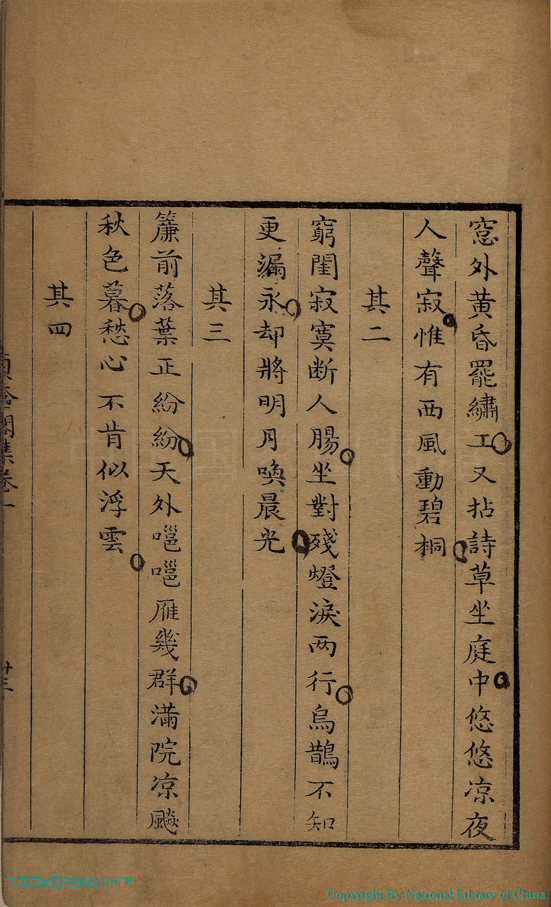 窓外黃昏罷繡工又拈詩草坐庭中悠悠凉夜
人聲寂惟有西風動碧桐
其二
窮閨寂寞断人腸坐對殘燈淚两行烏鵲不知
更漏永却將明月喚晨光
其三
簾前落葉正紛紛天外嗈嗈雁幾群滿院凉飈
秋色暮愁心不肯似浮雲
其四
集卷一
廿三
Copyright By National Library of China